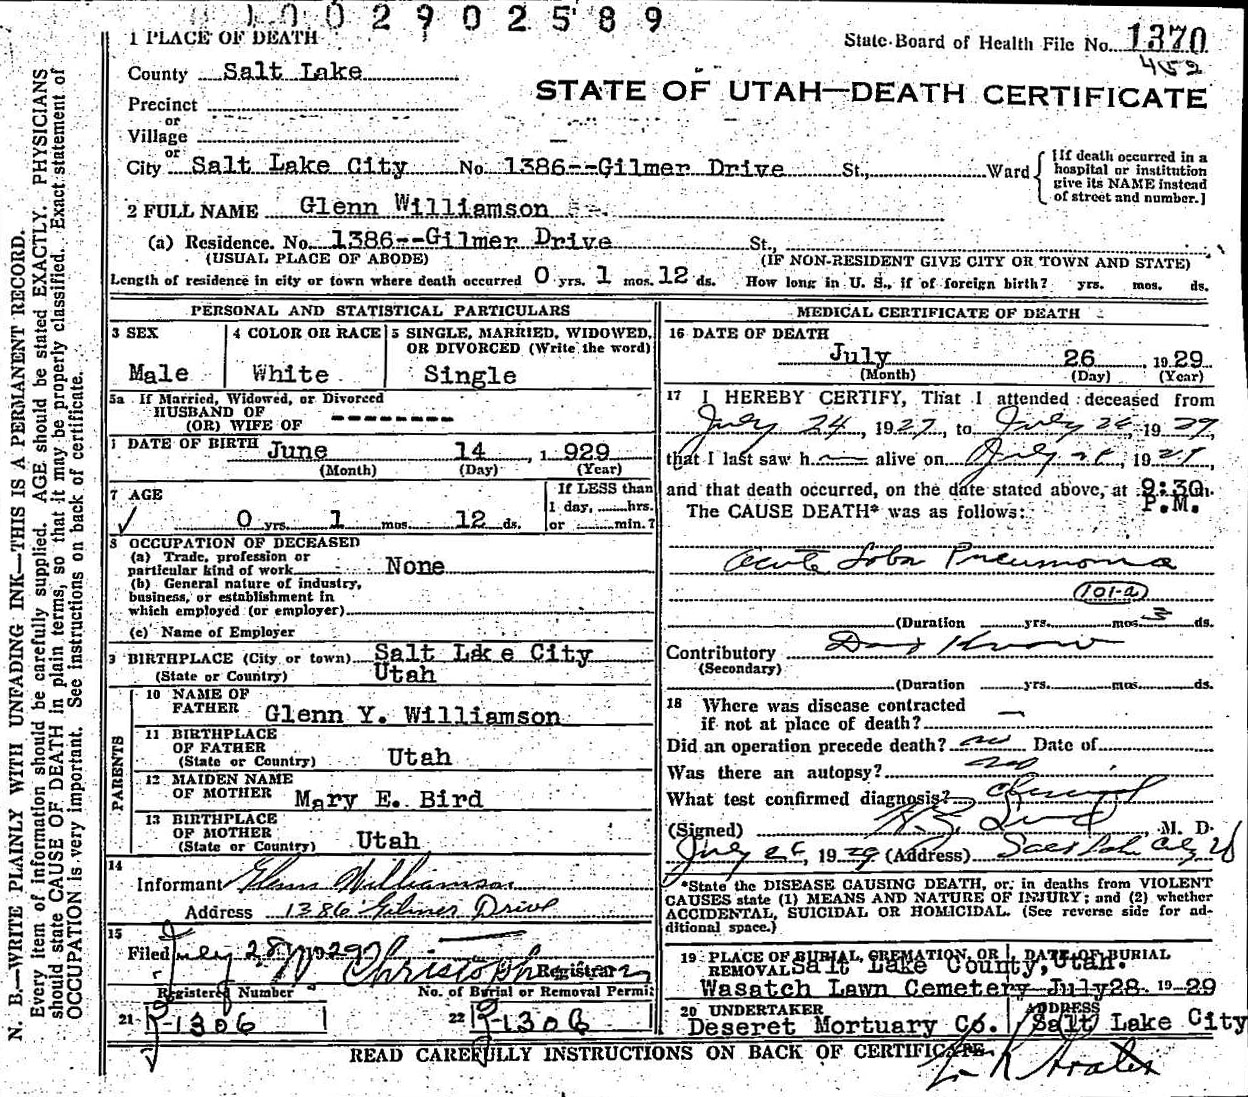 1002902589
State Board of Health File No. 1370
452
1 PLACE OF DEATH
County Salt Lake
STATE OF UTAH—DEATH CERTIFICATE
Precinct
or
Village
or
City Salt Lake City No. 1386--Gilmer Drive St., Ward
[If death occurred in a hospital or institution give its NAME instead of street and number.]
2 FULL NAME Glenn Williamson
(a) Residence. No. 1386--Gilmer Drive St.,
(USUAL PLACE OF ABODE) (IF NON-RESIDENT GIVE CITY OR TOWN AND STATE)
Length of residence in city or town where death occurred 0 yrs. 1 mos. 12 ds. How long in U. S., if of foreign birth? yrs. mos. ds.
PERSONAL AND STATISTICAL PARTICULARS
3 SEX
Male
4 COLOR OR RACE
White
5 SINGLE, MARRIED, WIDOWED,
OR DIVORCED (Write the word)
Single
5a If Married, Widowed, or Divorced
HUSBAND OF
(OR) WIFE OF --------
DATE OF BIRTH June 14, 1929
(Month) (Day) (Year)
7 AGE
0 yrs. 1 mos. 12 ds.
If LESS than
1 day, hrs.
or min.?
8 OCCUPATION OF DECEASED
(a) Trade, profession or
particular kind of work None
(b) General nature of industry,
business, or establishment in
which employed (or employer)
(c) Name of Employer
9 BIRTHPLACE (City or town) Salt Lake City
(State or Country) Utah
PARENTS
10 NAME OF
FATHER Glenn Y. Williamson
11 BIRTHPLACE
OF FATHER
(State or Country) Utah
12 MAIDEN NAME
OF MOTHER Mary E. Bird
13 BIRTHPLACE
OF MOTHER
(State or Country) Utah
14
Informant Glenn Williamson
Address 1386 Gilmer Drive
15
Filed July 28 1929 Christoph Registrar
Registered Number No. of Burial or Removal Permit
21 J-1306 22 J-1306
MEDICAL CERTIFICATE OF DEATH
16 DATE OF DEATH
July 26, 1929
(Month) (Day) (Year)
17 I HEREBY CERTIFY, That I attended deceased from
July 24, 1929, to July 26, 1929,
that I last saw h alive on July 26, 1929,
and that death occurred, on the date stated above, at 9:30 m.
P.M.
The CAUSE DEATH* was as follows:
Acute Lobar Pneumonia
101-a
(Duration yrs. mos. 3 ds.
Contributory Dont Know
(Secondary)
(Duration yrs. mos. ds.
18 Where was disease contracted
if not at place of death?
Did an operation precede death? no Date of
Was there an autopsy? no
What test confirmed diagnosis? Clinical
(Signed) M. D.
July 26, 1929 (Address) Salt Lake City
*State the DISEASE CAUSING DEATH, or, in deaths from VIOLENT
CAUSES state (1) MEANS AND NATURE OF INJURY; and (2) whether
ACCIDENTAL, SUICIDAL OR HOMICIDAL. (See reverse side for additional space.)
19 PLACE OF BURIAL, CREMATION, OR REMOVAL DATE OF BURIAL
Salt Lake County, Utah.
Wasatch Lawn Cemetery July 28 1929
20 UNDERTAKER ADDRESS
Deseret Mortuary Co. Salt Lake City
READ CAREFULLY INSTRUCTIONS ON BACK OF CERTIFICATE
N. B.—WRITE PLAINLY WITH UNFADING INK—THIS IS A PERMANENT RECORD.
Every item of information should be carefully supplied. AGE should be stated EXACTLY. PHYSICIANS
should state CAUSE OF DEATH in plain terms, so that it may be properly classified. Exact statement of
OCCUPATION is very important. See instructions on back of certificate.